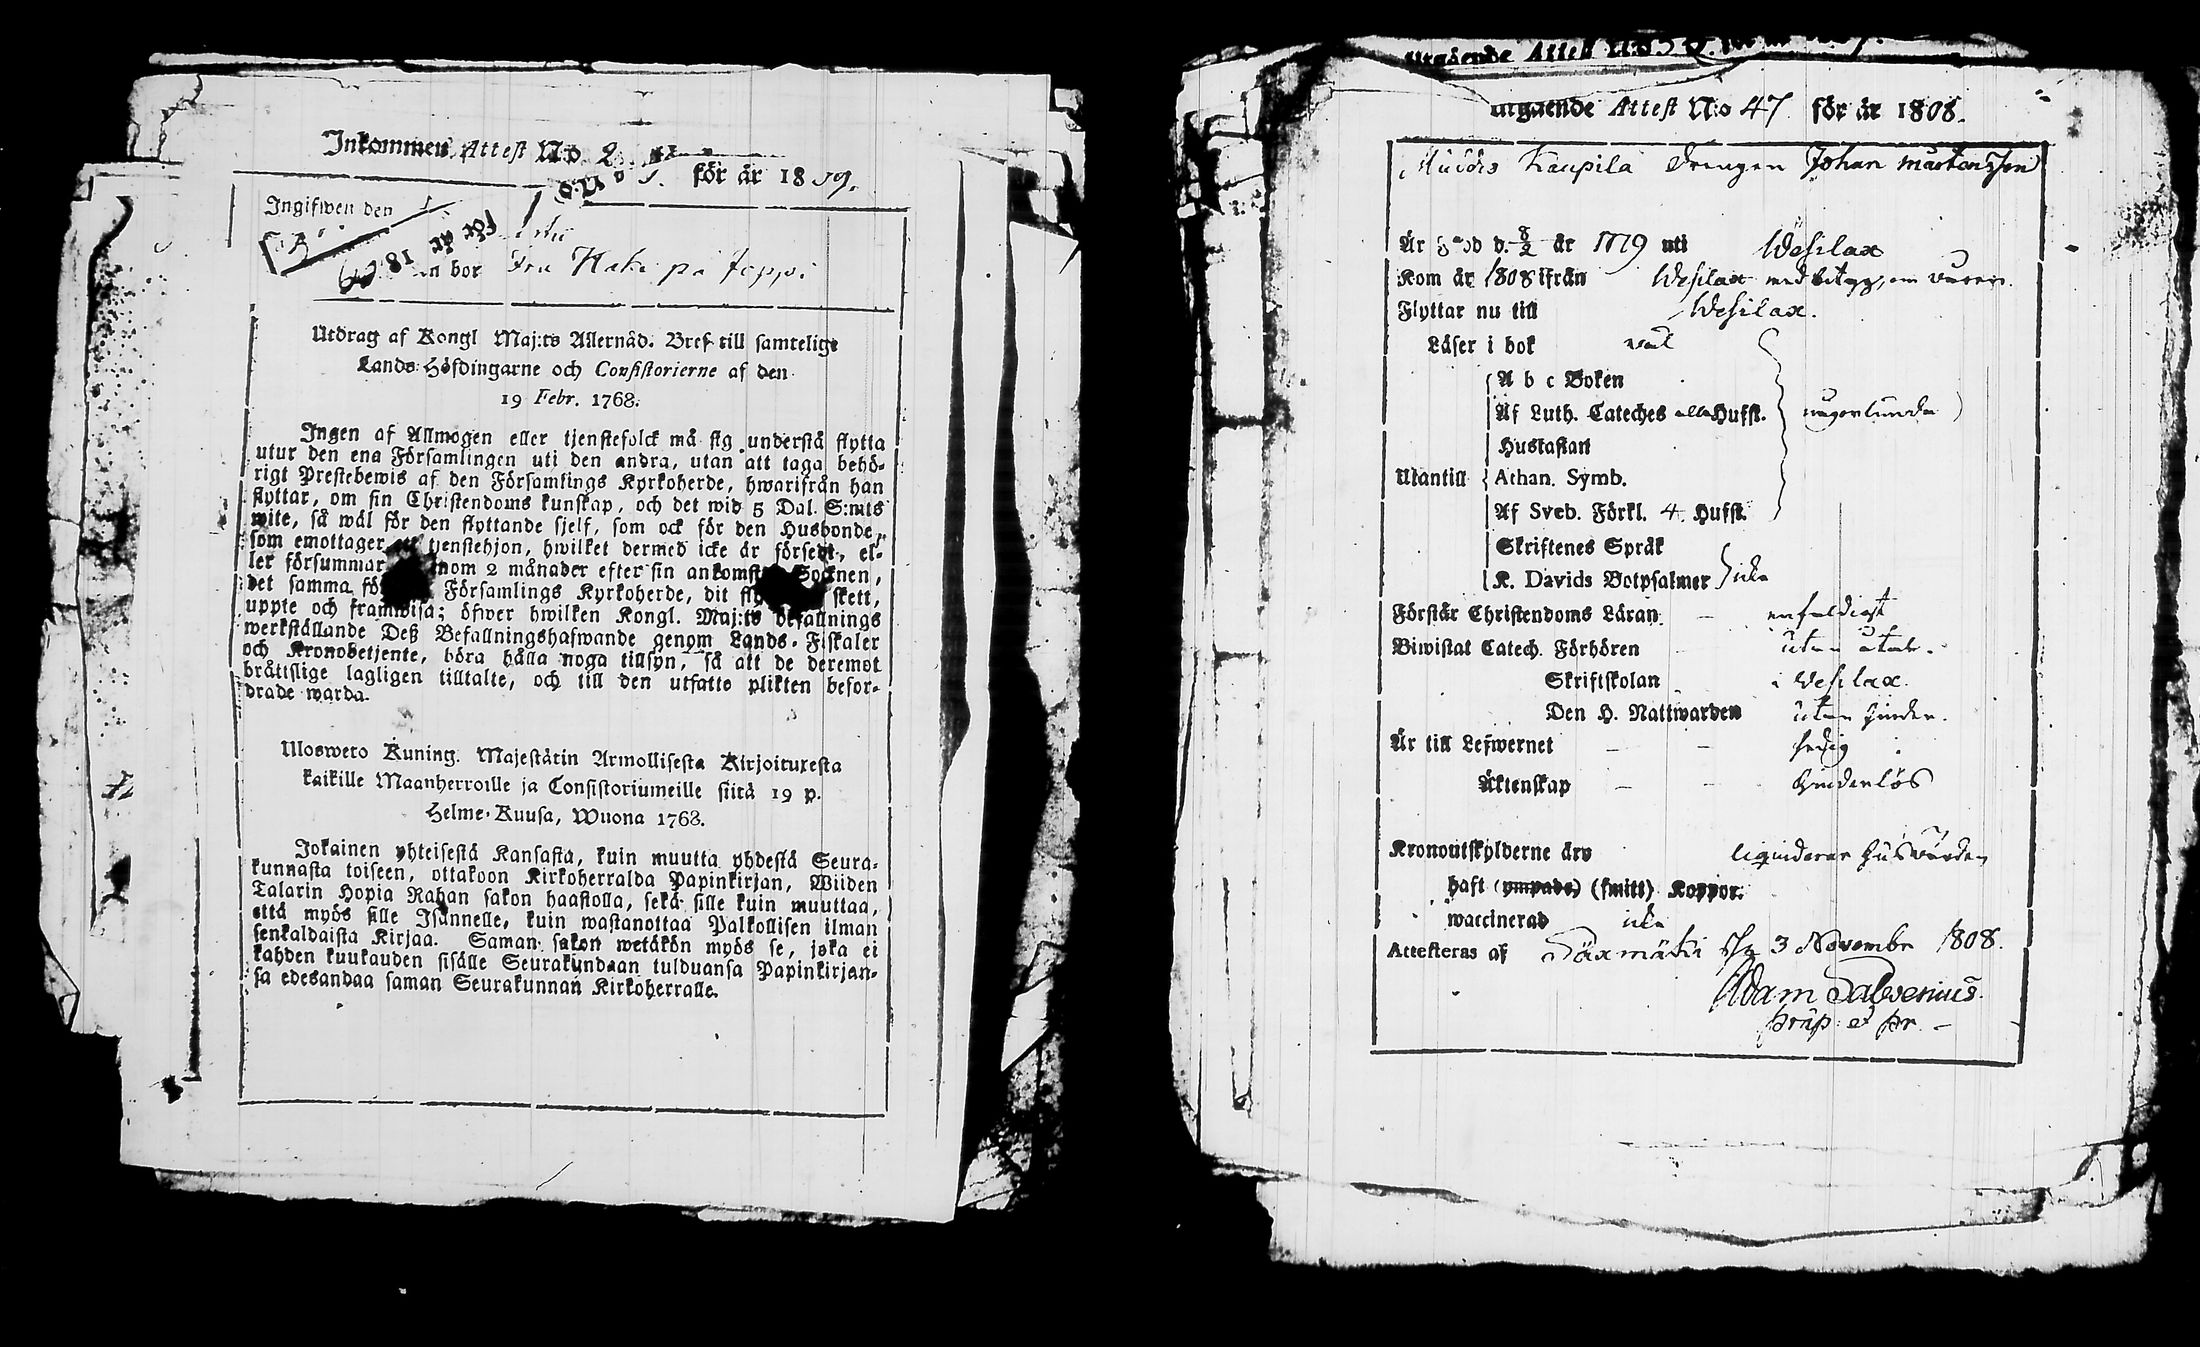 Inkommen Attest No 2.
för år 1809.
Ingifwen den
för år 18
bor
Utdrag af Kongl Maj:ts Allernåd. Bref till samtelige
Lands-Höfdingarne och Consistorierne af den
19 Febr. 1768.
Ingen af Allmogen eller tjenstefolck må sig understå flytta
utur den ena Församlingen uti den andra, utan att taga behö-
rigt Prestebewis af den Församlings Kyrkoherde, hwarifrån han
flyttar, om sin Christendoms kunskap, och det wid 5 Dal. S:mts
wite, så wäl för den flyttande sjelf, som ock för den Husbonde,
som emottager ett tjenstehjon, hwilket dermed icke är försedt, el-
ler försummar nom 2 månader efter sin ankomst Socknen,
det samma fö Församlings Kyrkoherde, dit fly skett,
uppte och framwisa; öfwer hwilken Kongl. Maj:ts befallnings
werkställande Deß Befallningshafwande genom Lands-Fiskaler
och Kronobetjente, böra hålla noga tillsyn, så att de deremot
bråttslige lagligen tilltalte, och till den utsatte plikten befor-
drade warda.
Ulosweto Kuning. Majestätin Armollisesta Kirjoituxesta
kaikille Maanherroille ja Consistoriumeille siitä 19 p.
Helme-Kuusa, Wuona 1768.
Jokainen yhteisestä Kansasta, kuin muutta yhdestä Seura-
kunnasta toiseen, ottakoon Kirkoherralda Papinkirjan, Wiiden
Talarin Hopia Rahan sakon haastolla, sekä sille kuin muuttaa,
että myös sille Isännelle, kuin wastanottaa Palkollisen ilman
senkaldaista Kirjaa. Saman sakon wetäkön myös se, joka ei
kahden kuukauden sisälle Seurakundaan tulduansa Papinkirjan-
sa edesandaa saman Seurakunnan Kirkoherralle.
Utgående Attest
utgående Attest No 47 för år 1808.
Kaupila Drengen Johan Mårtensson
Är född d. 8/2 år 1779 uti Wesilax
Kom år 1808 ifrån Wesilax med betyg, om
Flyttar nu till Wesilax.
Läser i bok wäl
A b c Boken
Af Luth. Cateches alla Hufst. någorlunda
Hustaflan
Utantill Athan. Symb.
Af Sveb. Förkl. 4. Hufst.
Skriftenes Språk
K. Davids Botpsalmer icke
Förstår Christendoms Läran enfaldigt
Biwistat Catech. Förhören utan
Skriftskolan i Wesilax.
Den H. Nattwarden utan hinder.
Är till Lefwernet fredig
Äktenskap hinderlös
Kronoutskylderne äro liqviderar husbonden
haft (ympade) (smitt) Koppor.
waccinerad icke
Attesteras af Sääxmäki d. 3 Novembr 1808.
Adam Salwenius.
præp: et pr.